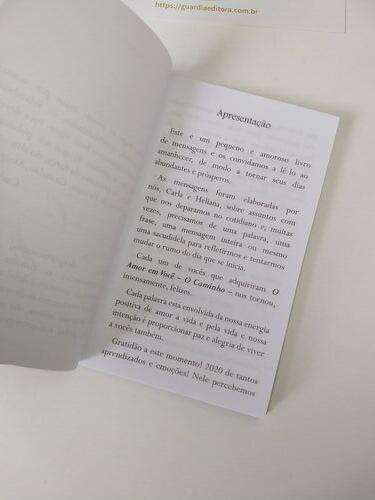 https://guardiaeditora.com.br
Apresentação
Este é um pequeno e amoroso livro
de mensagens e os convidamos a lê-lo ao
amanhecer, de modo a tornar seus dias
abundantes e prósperos.
As mensagens foram elaboradas por
nós, Carla e Heliana, sobre assuntos com
que nos deparamos no cotidiano e, muitas
vezes, precisamos de uma palavra, uma
frase, uma mensagem inteira ou mesmo
uma sacudidela para refletirmos e tentarmos
mudar o rumo do dia que se inicia.
Cada um de vocês que adquiriram O
Amor em Você – O Caminho – nos tornou,
imensamente, felizes.
Cada palavra está envolvida da nossa energia
positiva de amor à vida e pela vida e nossa
intenção é proporcionar paz e alegria de viver
a vocês também.
Gratidão a este momento! 2020 de tantos
aprendizados e emoções! Nele percebemos